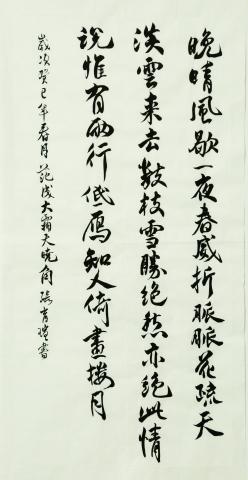 晚晴風歇一夜春威折脈脈花疏天
淡雲来去數枝雪勝絕愁亦絕此情
說惟有兩行低雁知人倚畫樓月
歲次癸巳年春月範成大霜天曉角張青書